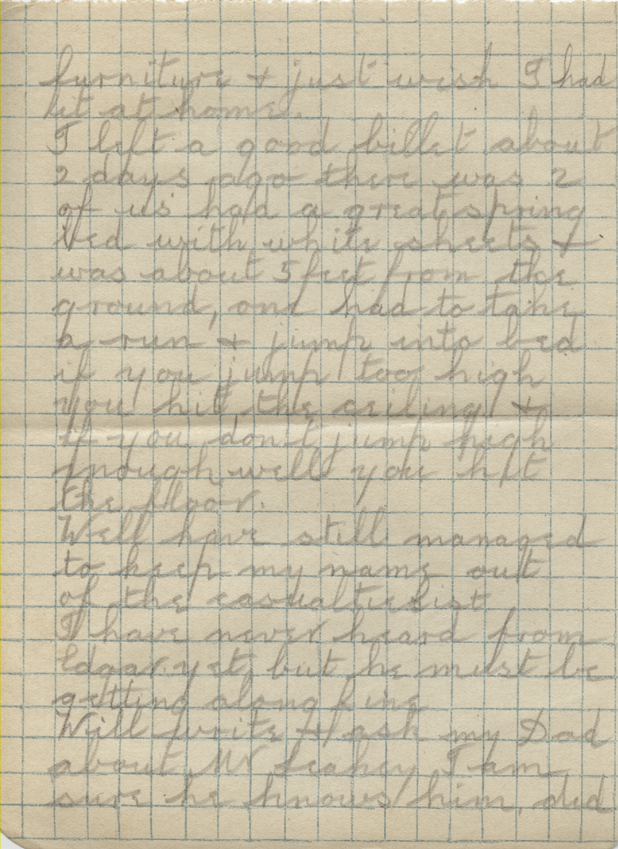 furniture + just wish I had
it at home.
I left a good billet about
2 days ago there was 2
of us had a great spring
bed with white sheets +
was about 5 feet from the
ground, one had to take
a run + jump into bed
if you jump too high
you hit the ceiling +
if you don't jump high
enough well you hit
the floor.
Well have still managed
to keep my name out
of the casualtie list
I have never heard from
Edgar yet but he must be
getting along fine
Will write + ask my Dad
about Mr Leahey I am
sure he knows him, did